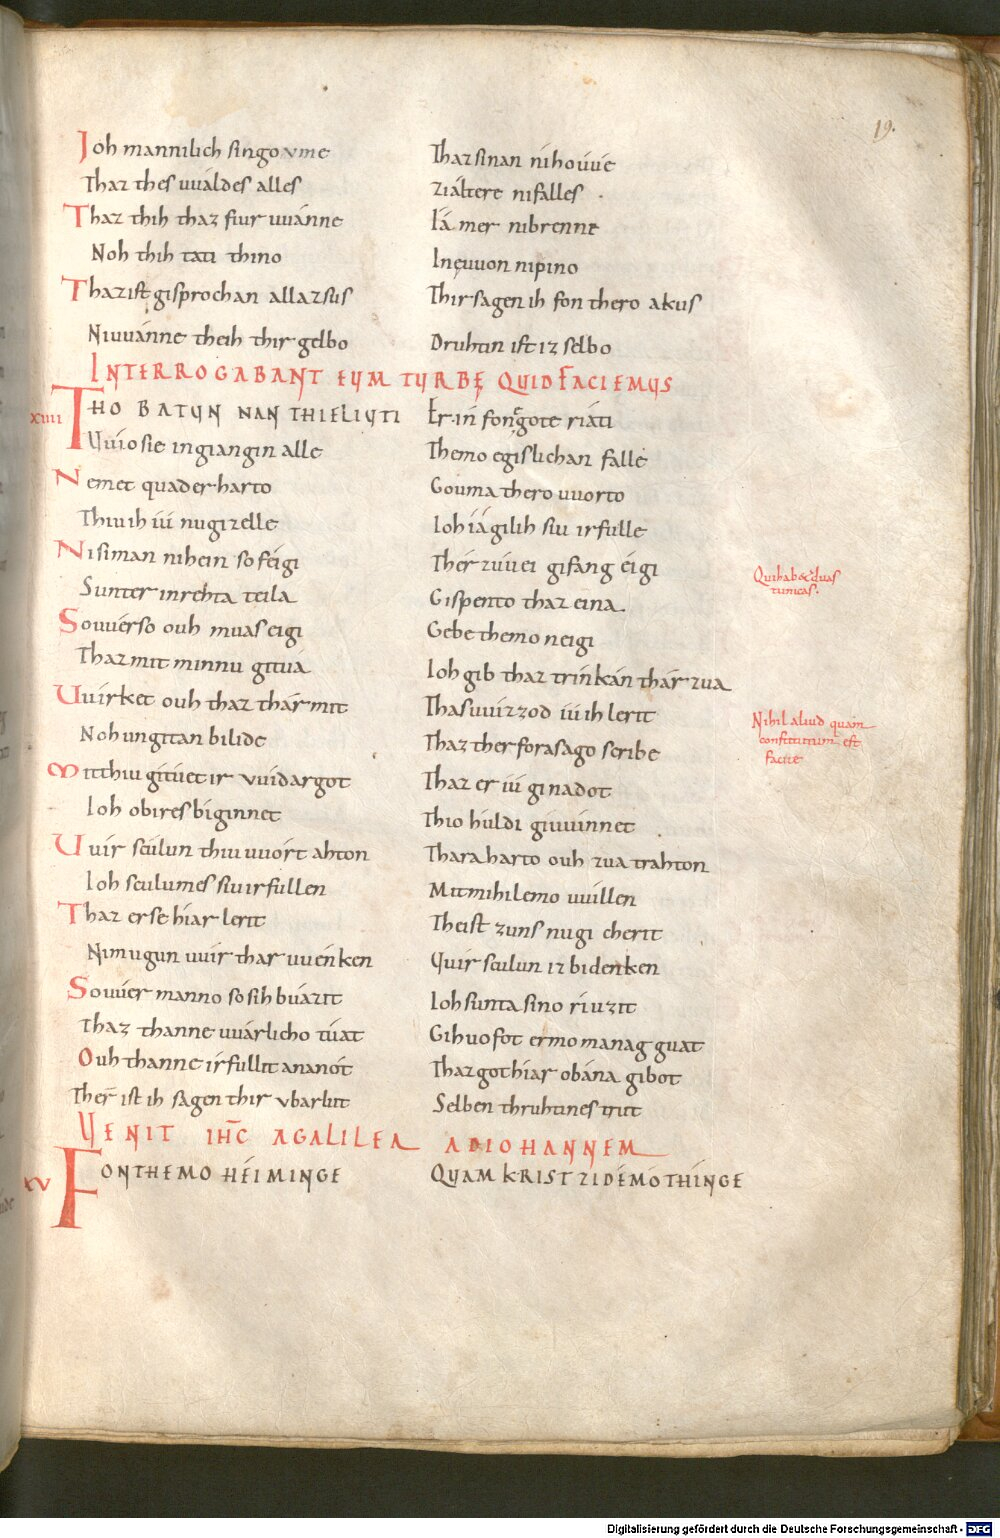 19.
Joh mannilich singoume Tharsinan nihouúe
Thaz thes uuáldes alles ziáltere nifalles
Thaz thih thaz fiur uuánne Iá mer nibrenne
Noh thih tati thino Inęuuon nipino
Thazist gisprochan allazsus Thir sagen ih fon thero akus
Niuuánne theih thir gelbo Druhtin ist iz selbo
INTERROGABANT EUM TURBĘ QUID FACIEMUS
XIIII THO BATUN NAN THIELIUTI Er in fon gote riáti
Uuiosie ingiangin alle Themo egislichan falle
Nemet quad er harto Gouma thero uuorto
Thiuih iú nugizelle Ioh iágilih siu irfulle
Nisiman nihein so féigi Thér zuúei gifang éigi
Quihabet duas
Sunter inrehta teila Gispento thaz eina.
tunicas.
Souuérso ouh muas eigi Gebe themo neigi
Thazmit minnu gitua Ioh gib thaz trinkán thárzua
Uuirket ouh thaz thármit Thasuuizzod iúih lerit
Nihil aliud quam
Noh ungitan bilide Thaz ther forasago scribe
constitutum est
facite
Mitthiu gitúet ir uuidargot Thaz er iú ginadot
Ioh obir es biginnet Thio huldi giuuinnet
Uuir sculun thiu uuórt ahton Tharaharto ouh zua trahton
Ioh sculumes siu irfullen Mit mihilemo uuillen
Thaz er se hiar lerit Theist zuns nugi cherit
Nimugun uuir thar uuénken Uuir sculun iz bidenken
Souuer manno sosih buázit Ioh sunta sino riuzit
Thaz thanne uuárlicho túat Gihuofot er mo managguat
Ouh thanne irfullit ananót Thazgot hiar obána gibot
Ther ist ih sagen thir ubarlut Selben thruhtines trut
UENIT IHC AGALILEA ADIOHANNEM
XV FONTHEMO HÉIMINGE QUAM KRIST ZI DÉMO THÍNGE
Digitalisierung gefördert durch die Deutsche Forschungsgemeinschaft - DFG